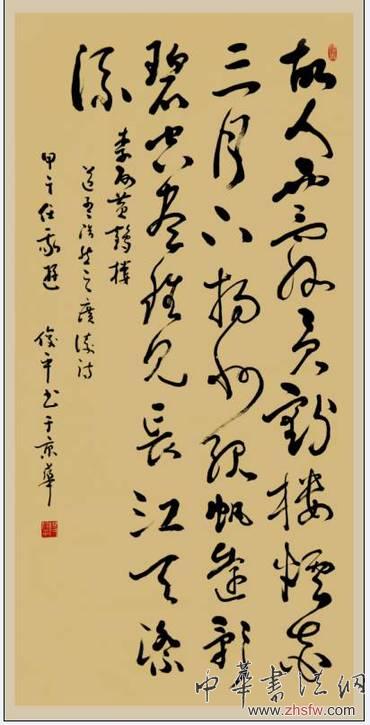 故人西辞黄鹤楼烟花
三月下扬州孤帆远影
碧空尽唯见长江天际
流
李白黄鹤楼
送孟浩然之广陵诗
甲午任 俊平书于京华
中華書法網
www.zhsfw.com